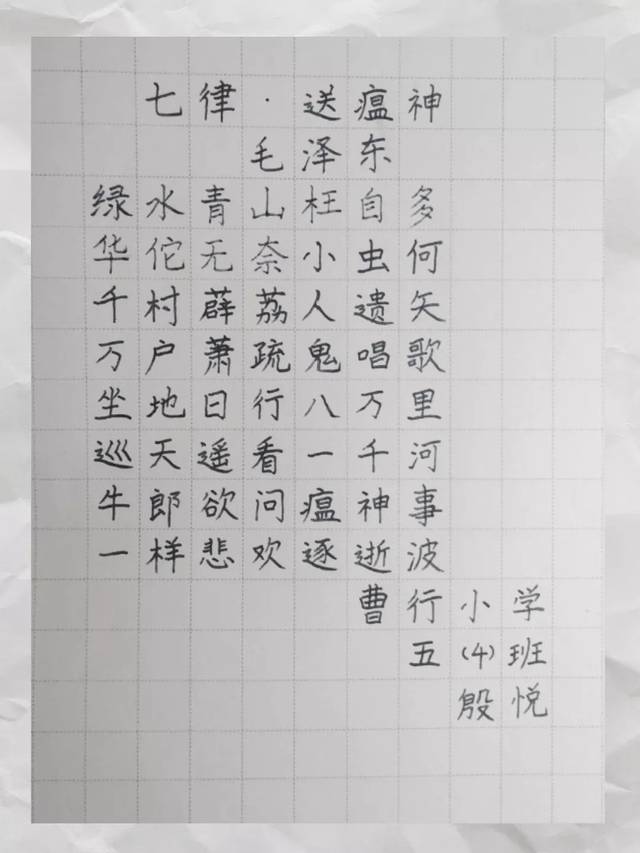 七律·送瘟神
毛泽东
绿水青山枉自多
华佗无奈小虫何
千村薜荔人遗矢
万户萧疏鬼唱歌
坐地日行八万里
巡天遥看一千河
牛郎欲问瘟神事
一样悲欢逐逝波
曹行小学
五(4)班
殷悦